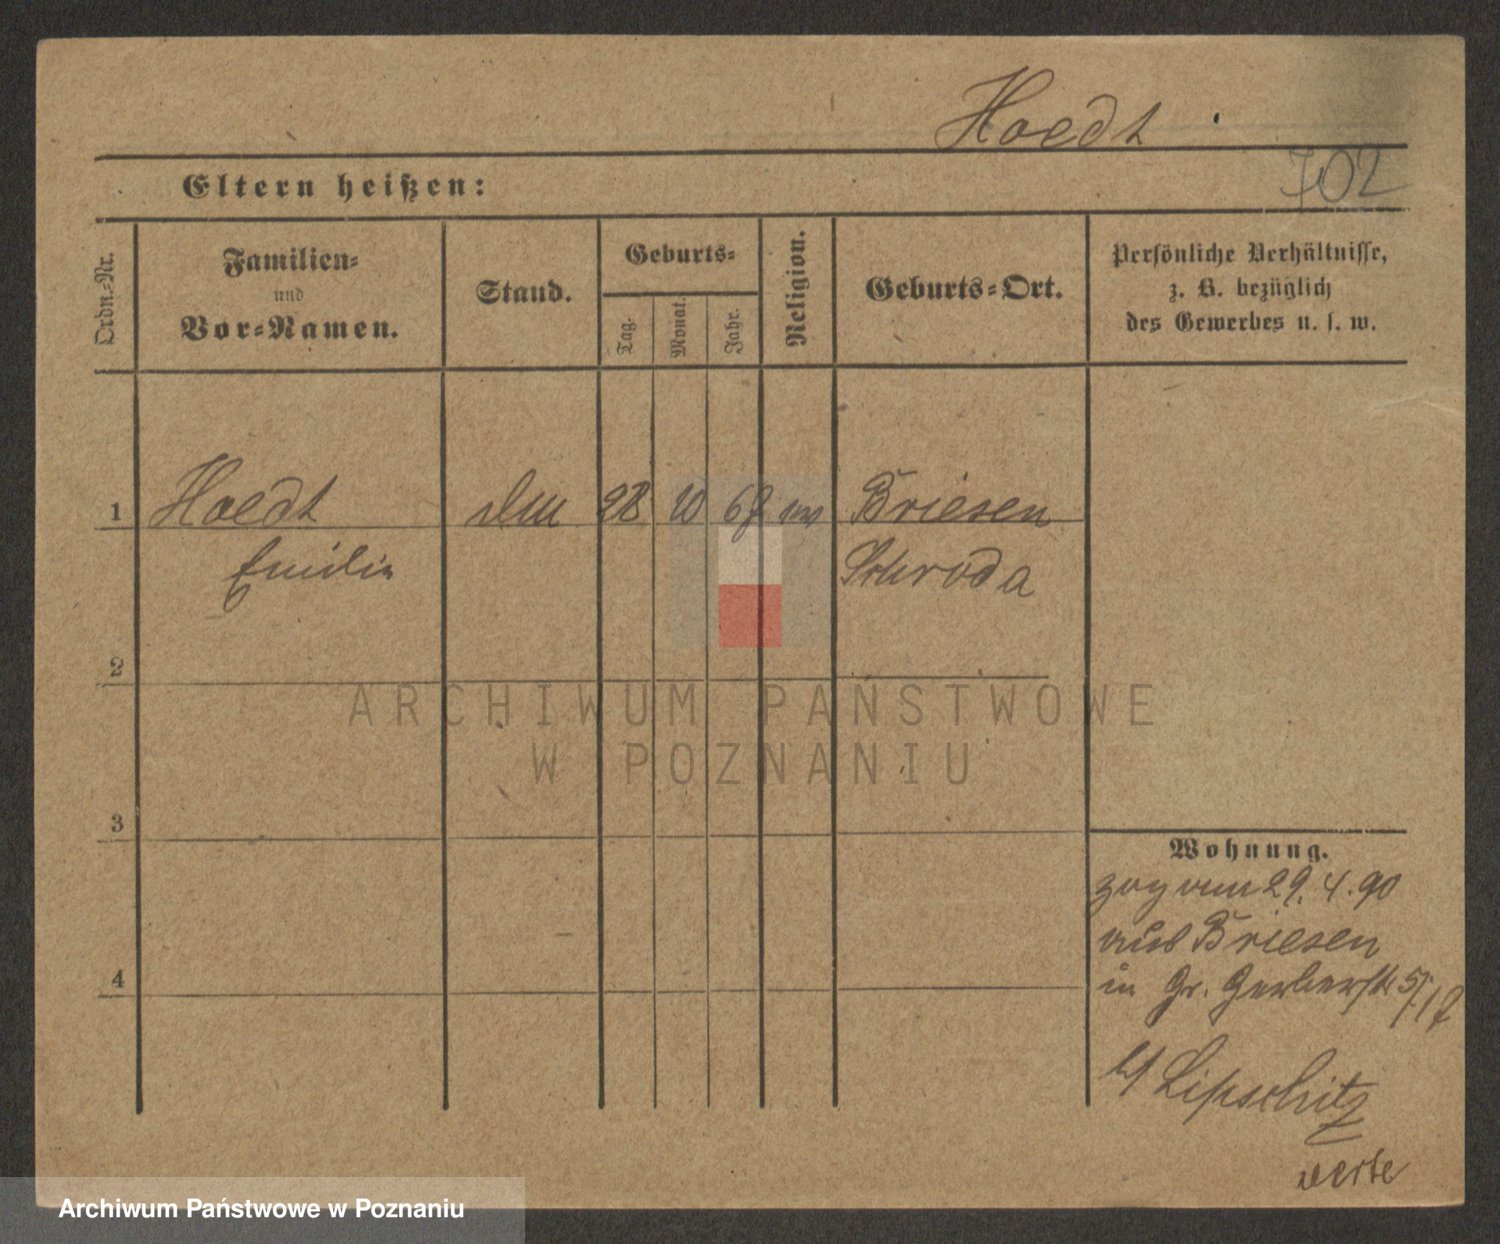 Hoedt
702
Eltern heißen:
Ordn.-Nr.
Familien-
und
Vor-Namen.
Stand.
Geburts-
Tag.
Monat.
Jahr.
Religion.
Geburts-Ort.
Persönliche Verhältnisse,
z. B. bezüglich
des Gewerbes u. s. w.
1
Hoedt
28
10
67
Briesen
Emilie
Schroda
2
ARCHIWUM PAŃSTWOWE
W POZNANIU
3
4
Wohnung.
zog am 29. 4. 90
aus Briesen
in Gr. Gerberstr
b/ Lipschitz
Archiwum Państwowe w Poznaniu